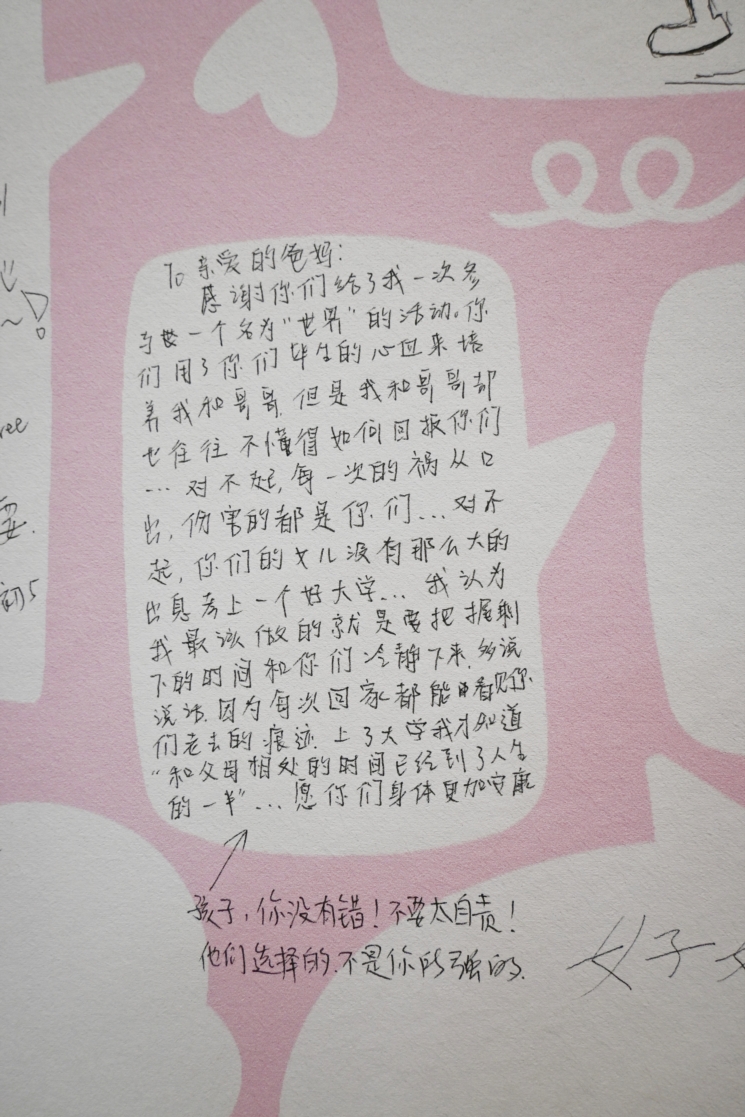 To 亲爱的爸妈：
感谢你们给了我一次参
与一个名为“世界”的活动。你
们用了你们毕生的心血来培
养我和哥哥，但是我和哥哥却
也往往不懂得如何回报你们
… 对不起，每一次的祸从口
出，伤害的都是你们… 对不
起，你们的女儿没有那么大的
出息考上一个好大学… 我认为
我最该做的就是要把握剩
下的时间和你们冷静下来，多说
说话，因为每次回家都能看见你
们老去的痕迹，上了大学我才知道
“和父母相处的时间已经到了人生
的一半”… 愿你们身体更加安康
孩子，你没有错！不要太自责！
他们选择的，不是你所强的
女子
ree
要.
初5